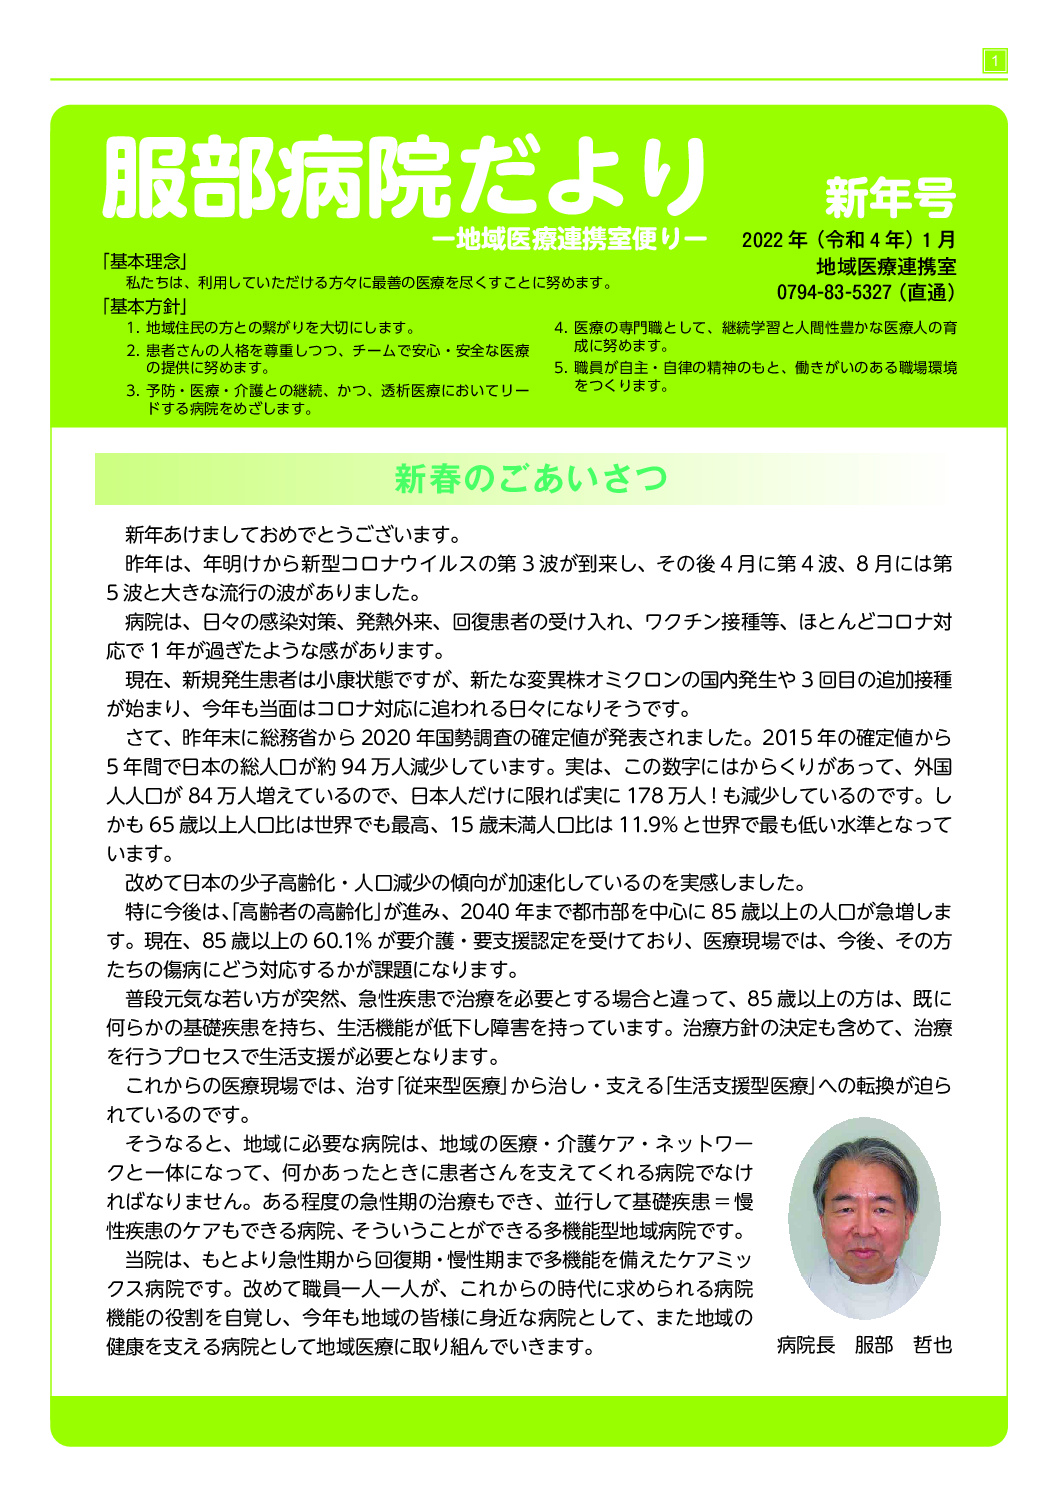 1
服部病院だより
新年号
ー地域医療連携室便りー
2022 年（令和 4 年）1 月
地域医療連携室
0794-83-5327（直通）
「基本理念」
私たちは、利用していただける方々に最善の医療を尽くすことに努めます。
「基本方針」
1. 地域住民の方との繋がりを大切にします。
2. 患者さんの人格を尊重しつつ、チームで安心・安全な医療
の提供に努めます。
3. 予防・医療・介護との継続、かつ、透析医療においてリー
ドする病院をめざします。
4. 医療の専門職として、継続学習と人間性豊かな医療人の育
成に努めます。
5. 職員が自主・自律の精神のもと、働きがいのある職場環境
をつくります。
新春のごあいさつ
新年あけましておめでとうございます。
昨年は、年明けから新型コロナウイルスの第 3 波が到来し、その後 4 月に第 4 波、8 月には第
5 波と大きな流行の波がありました。
病院は、日々の感染対策、発熱外来、回復患者の受け入れ、ワクチン接種等、ほとんどコロナ対
応で 1 年が過ぎたような感があります。
現在、新規発生患者は小康状態ですが、新たな変異株オミクロンの国内発生や 3 回目の追加接種
が始まり、今年も当面はコロナ対応に追われる日々になりそうです。
さて、昨年末に総務省から 2020 年国勢調査の確定値が発表されました。2015 年の確定値から
5 年間で日本の総人口が約 94 万人減少しています。実は、この数字にはからくりがあって、外国
人人口が 84 万人増えているので、日本人だけに限れば実に 178 万人！も減少しているのです。し
かも 65 歳以上人口比は世界でも最高、15 歳未満人口比は 11.9% と世界で最も低い水準となって
います。
改めて日本の少子高齢化・人口減少の傾向が加速化しているのを実感しました。
特に今後は、「高齢者の高齢化」が進み、2040 年まで都市部を中心に 85 歳以上の人口が急増しま
す。現在、85 歳以上の 60.1% が要介護・要支援認定を受けており、医療現場では、今後、その方
たちの傷病にどう対応するかが課題になります。
普段元気な若い方が突然、急性疾患で治療を必要とする場合と違って、85 歳以上の方は、既に
何らかの基礎疾患を持ち、生活機能が低下し障害を持っています。治療方針の決定も含めて、治療
を行うプロセスで生活支援が必要となります。
これからの医療現場では、治す「従来型医療」から治し・支える「生活支援型医療」への転換が迫ら
れているのです。
そうなると、地域に必要な病院は、地域の医療・介護ケア・ネットワー
クと一体になって、何かあったときに患者さんを支えてくれる病院でなけ
ればなりません。ある程度の急性期の治療もでき、並行して基礎疾患＝慢
性疾患のケアもできる病院、そういうことができる多機能型地域病院です。
当院は、もとより急性期から回復期・慢性期まで多機能を備えたケアミッ
クス病院です。改めて職員一人一人が、これからの時代に求められる病院
機能の役割を自覚し、今年も地域の皆様に身近な病院として、また地域の
健康を支える病院として地域医療に取り組んでいきます。
病院長　服部　哲也